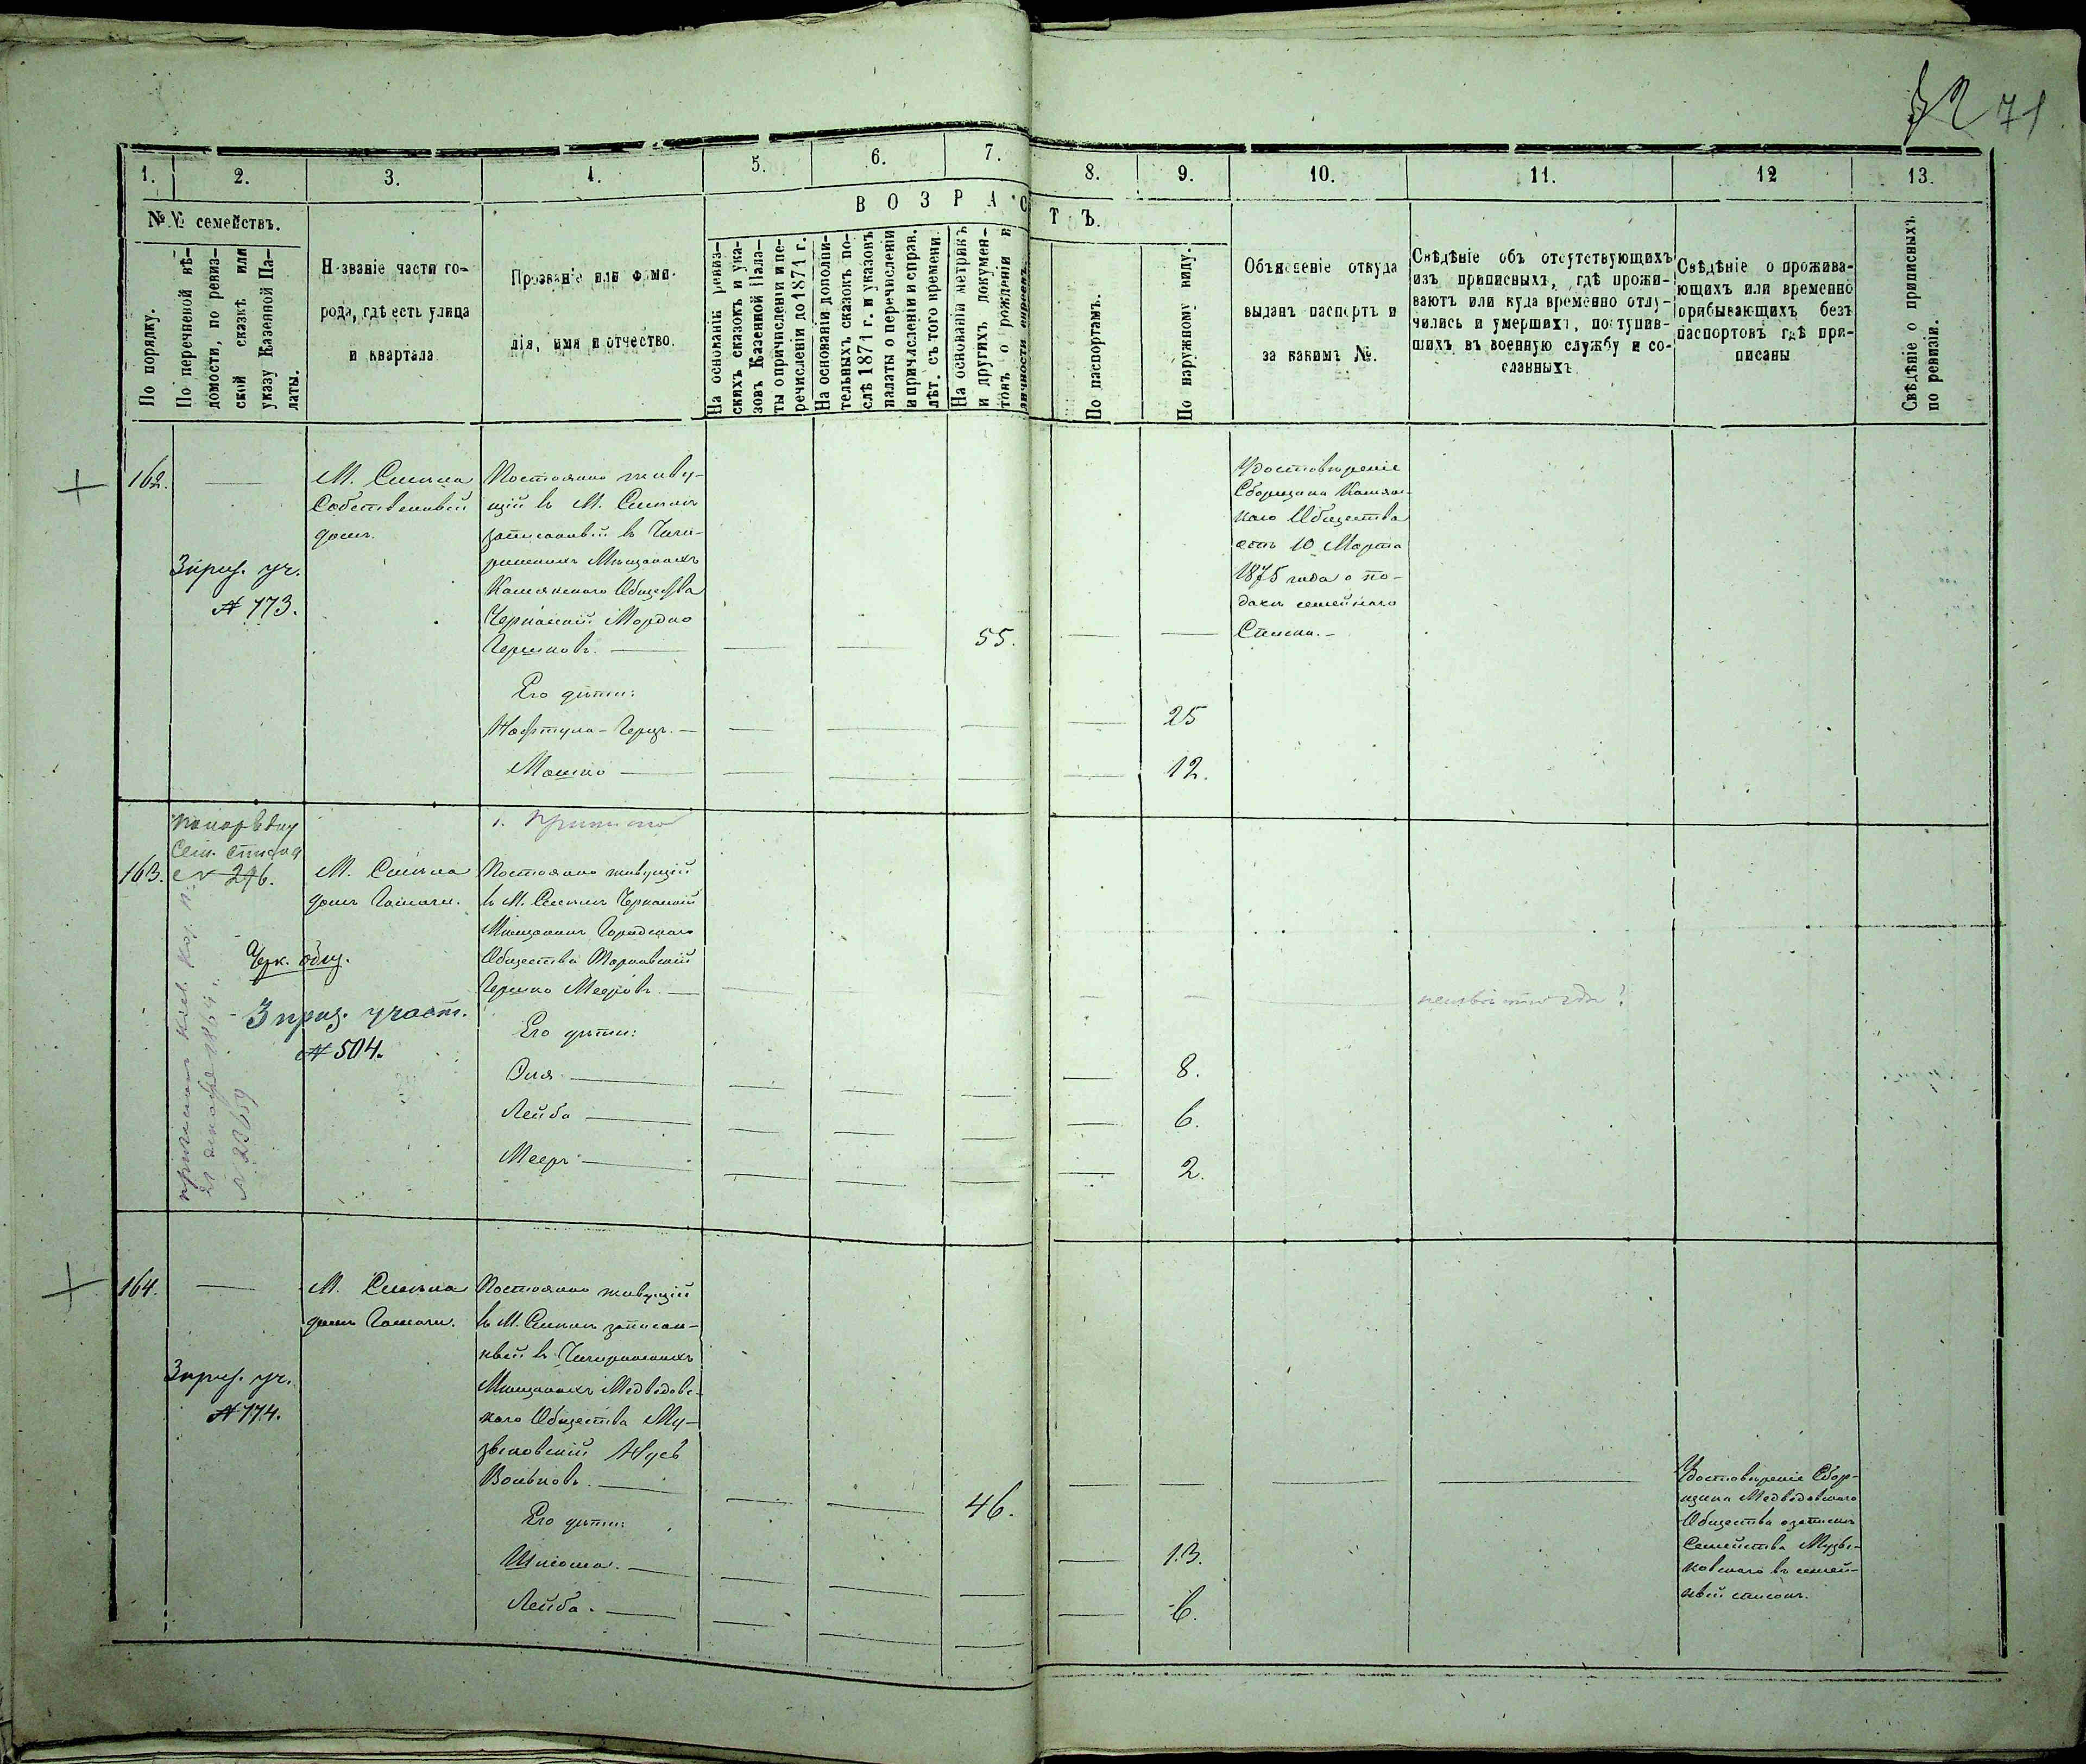 72 71
1. 2. 3. 4. 5. 6. 7. 8. 9. 10. 11. 12 13.
№№ семействъ.
В О З Р А С Т Ъ.
По порядку.
По перечневой вѣ-
домости, по ревиз-
ской сказкѣ или
указу Казенной Па-
латы.
Названіе части го-
рода, гдѣ есть улица
и квартала
Прозваніе или фами-
лія, имя и отчество.
На основаніи ревиз-
скихъ сказокъ и ука-
зовъ Казенной Пала-
ты о причисленіи и пе-
речисленіи до 1871 г.
На основаніи дополни-
тельныхъ сказокъ по-
слѣ 1871 г. и указовъ
палаты о перечисленіи
и причисленіи и справ.
лѣт. съ того времени.
На основаніи метрикъ
и другихъ докумен-
товъ о рожденіи и
личности евреевъ.
По паспортамъ.
По наружному виду.
Объясненіе откуда
выданъ паспортъ и
за какимъ №.
Свѣдѣніе объ отсутствующихъ
изъ приписныхъ, гдѣ прожи-
ваютъ или куда временно отлу-
чились и умершихъ, поступив-
шихъ въ военную службу и со-
сланныхъ
Свѣдѣніе о прожива-
ющихъ или временно
прибывающихъ безъ
паспортовъ гдѣ при-
писаны
Свѣдѣніе о приписныхъ
по ревизіи.
162.
3 приз. уч.
№ 173.
М. Смѣла
Собственный
домъ.
Постоянно живу-
щій въ М. Смѣлѣ
записанный въ Чиги-
ринскихъ Мѣщанахъ
Общества
Мордко
Гершковъ.
55.
Удостовѣреніе
Сборщика
Общества
отъ 10 Марта
1875 года о по-
дачѣ семейнаго
Списка.
Его дѣти:
Нафтула-Герцъ. 25
Мошко 12.
163.
№ 216.
Черк. общ.
3 приз. участ.
№ 504.
М. Смѣла
домъ
Постоянно живущій
въ М. Смѣлѣ Черкаскій
Мѣщанинъ Городскаго
Общества
Гершко Мееровъ.
неизвѣстно гдѣ
Его дѣти:
8.
Лейба 6.
Мееръ 2.
164.
3 приз. уч.
№ 174.
М. Смѣла
домъ
Постоянно живущій
въ М. Смѣлѣ записан-
ный въ Чигиринскихъ
Мѣщанахъ Медведовс-
каго Общества Му-
зыковскій Нусь
Вольковъ.
46.
Удостовѣреніе Сбор-
щика Медведовскаго
Общества о записи
Семейства Музы-
ковскаго въ семей-
ный списокъ.
Его дѣти:
Шлёма. 13.
Лейба. 6.